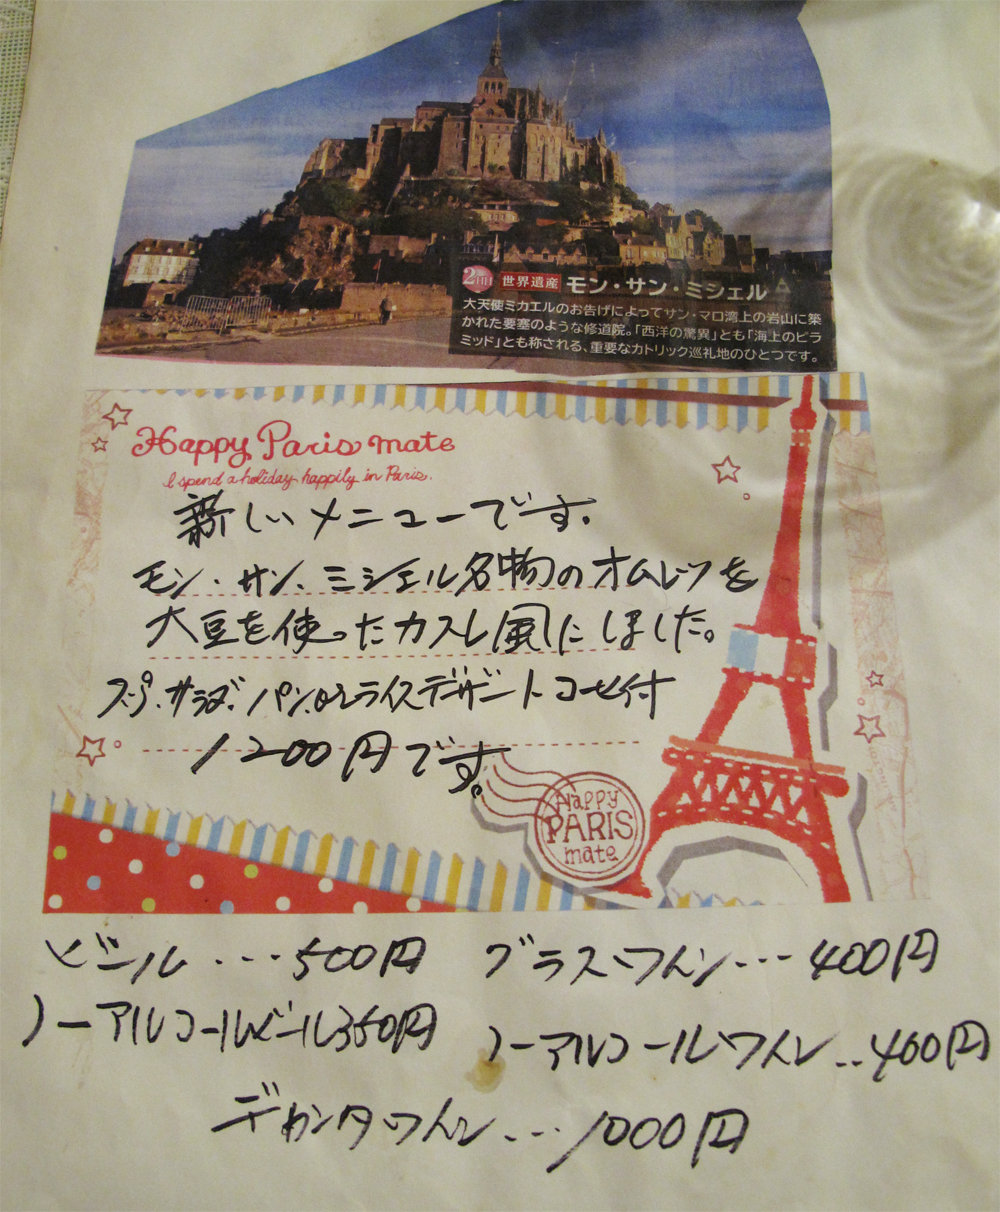 2日目 世界遺産 モン・サン・ミシェル
大天使ミカエルのお告げによってサン・マロ湾上の岩山に築
かれた要塞のような修道院。「西洋の驚異」とも「海上のピラ
ミッド」とも称される、重要なカトリック巡礼地のひとつです。
Happy Paris mate
I spend a holiday happily in Paris.
新しいメニューです.
モン・サン、ミシェル名物のオムレツを
大豆を使ったカスレ風にしました。
スープ.サラダ.パンorライスデザートコーヒー付
1200円です。
Happy
PARIS
mate
ビール ・・・500円
グラスワイン・・・400円
ノーアルコールビール350円
ノーアルコールワイン‥400円
デカンタワイン・・・1000円